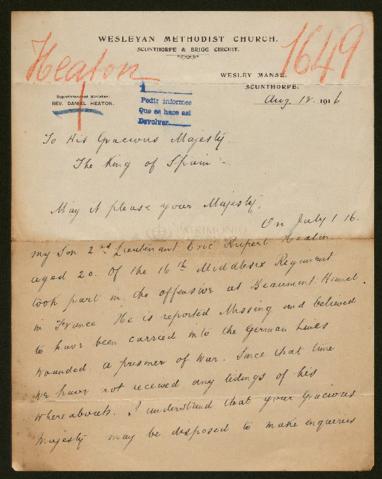 WESLEYAN METHODIST CHURCH.
SCUNTHORPE & BRIGG CIRCUIT.
Heaton
1649
WESLEY MANSE,
SCUNTHORPE.
Superintendent Minister:
REV. DANIEL HEATON.
Pedir informes
Que se hace así
Devolver
Aug. 18. 1916
To His Gracious Majesty
The King of Spain :-
May it please your Majesty.
On July 1 16.
my Son 2nd Lieutenant Eric Rupert Heaton
aged 20. of the 16th Middlesex Regiment
took part in the offensive at Beaumont Hamel.
in France. He is reported Missing and believed
to have been carried into the German Lines
wounded a prisoner of War. Since that time
we have not received any tidings of his
whereabouts. I understand that your Gracious
Majesty may be disposed to make enquiries
PATRIMONIO